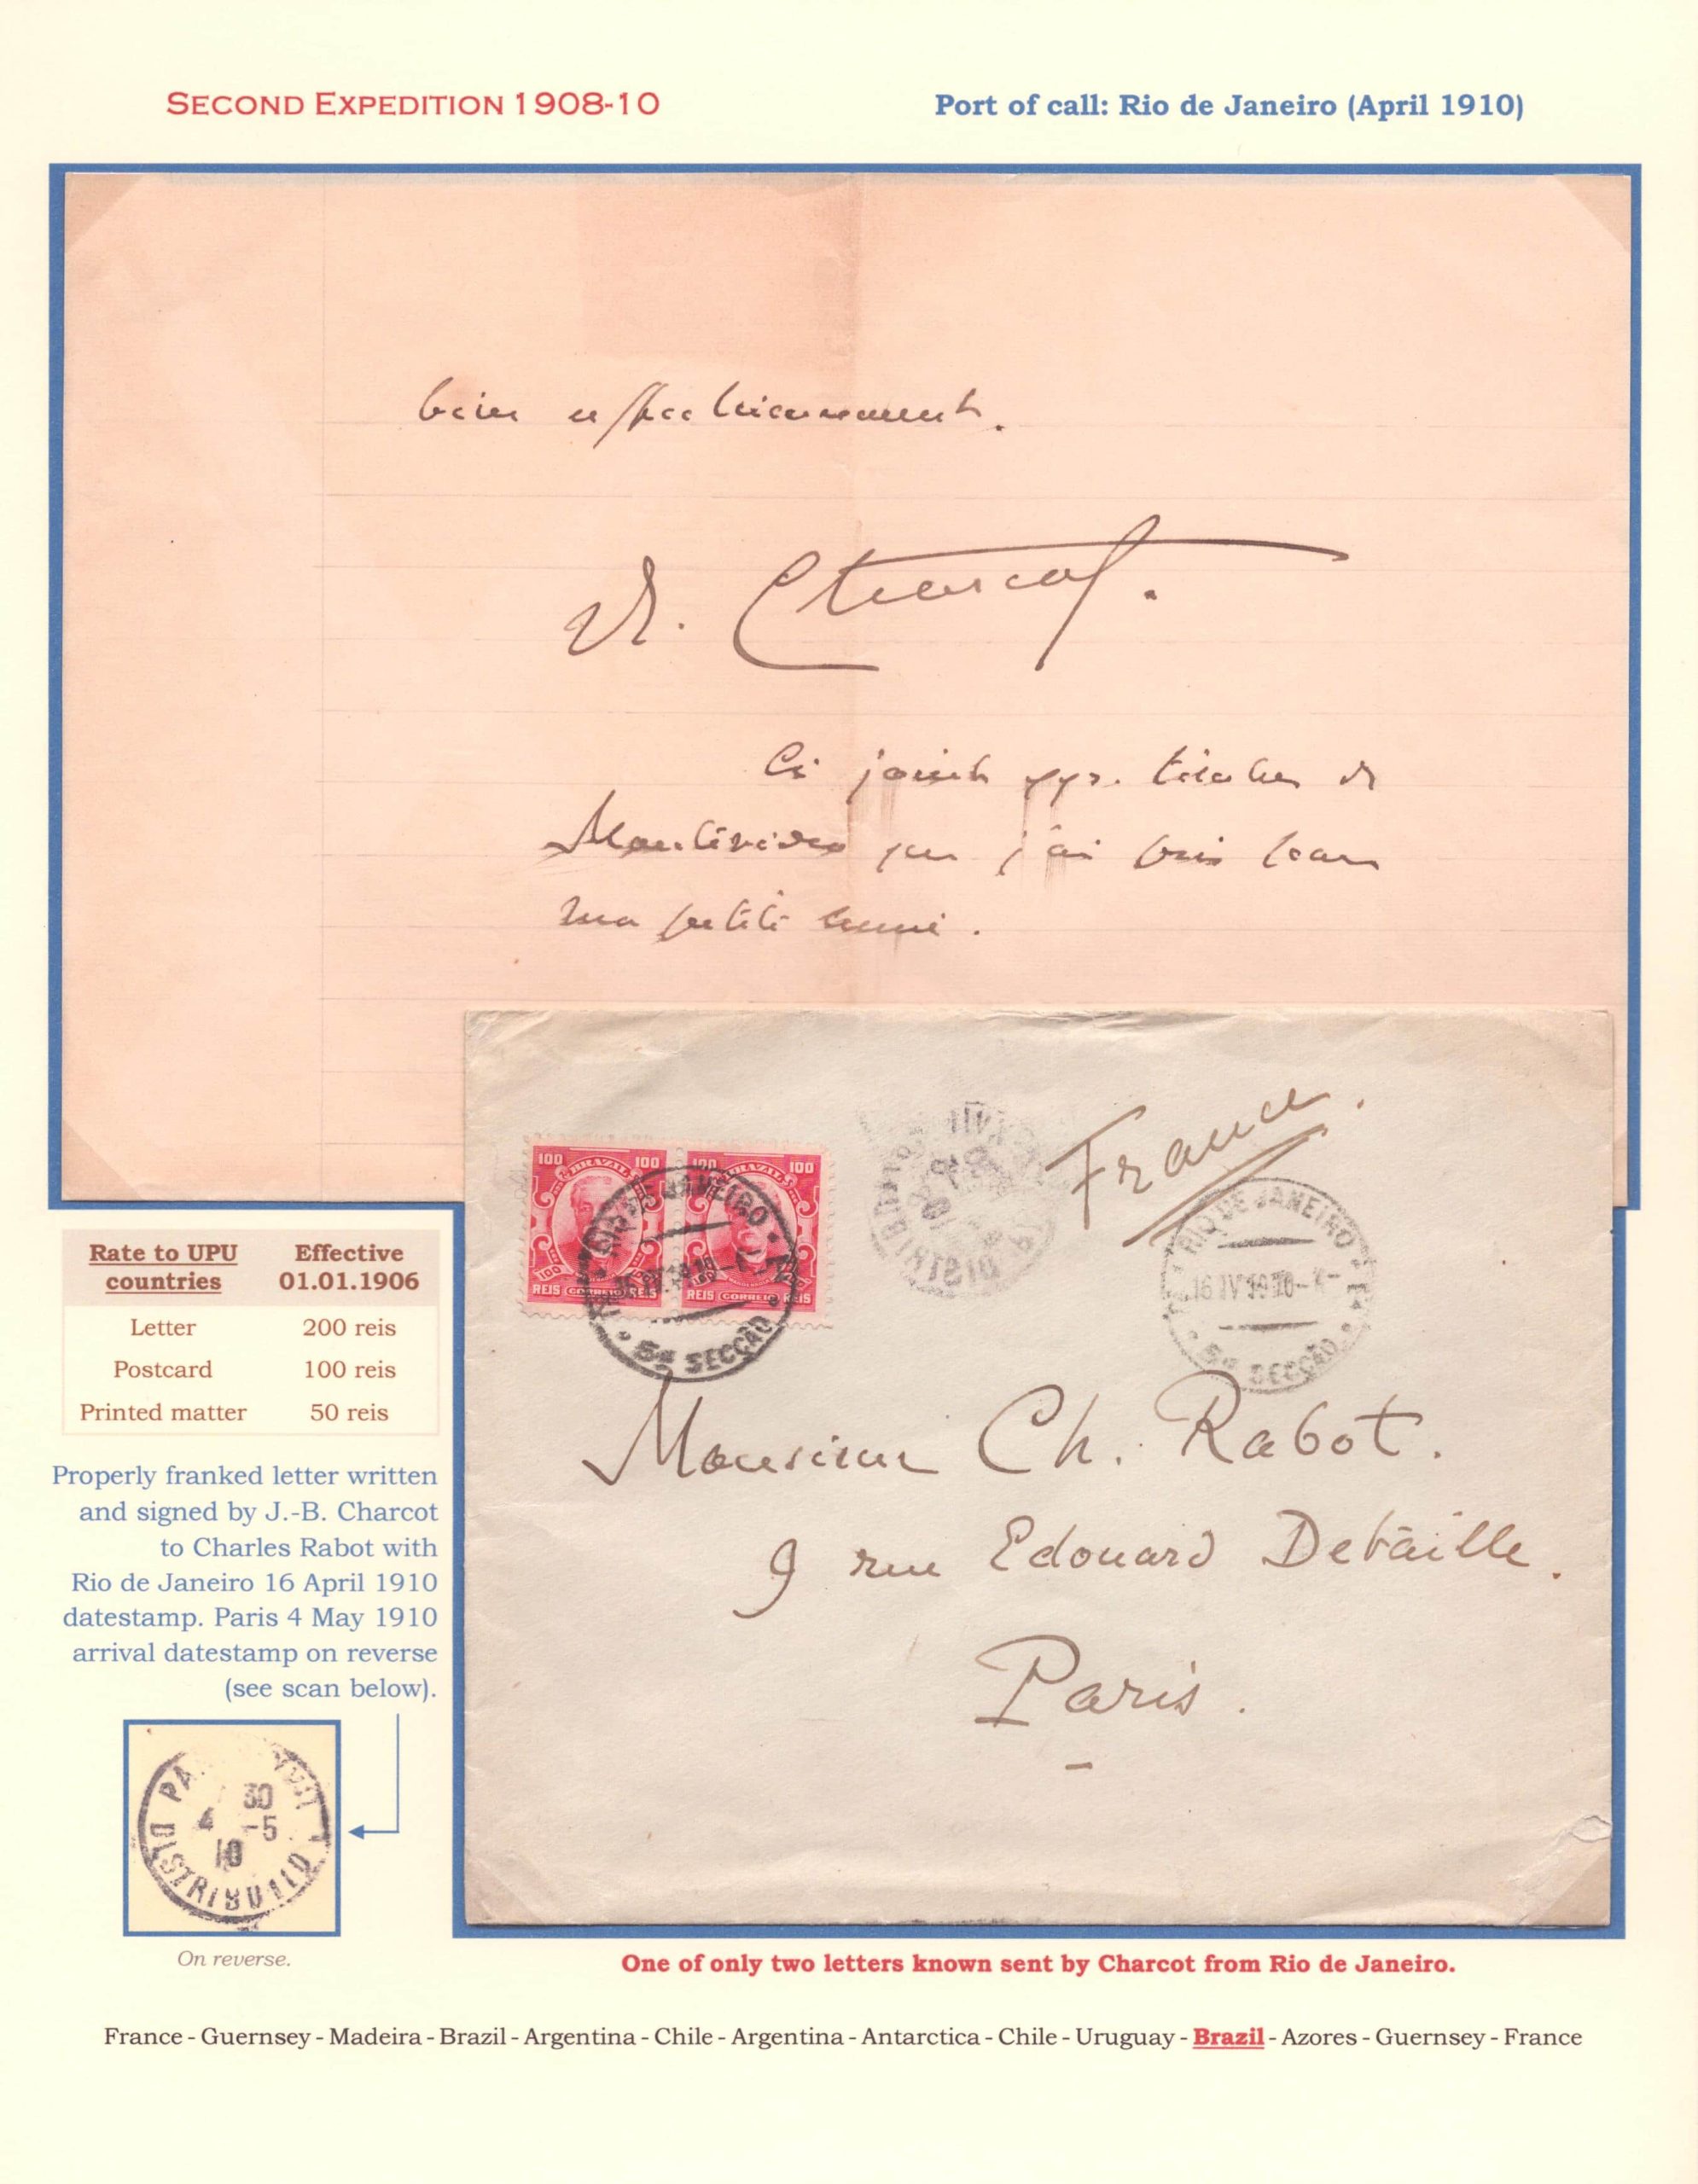 SECOND EXPEDITION 1908-10
Port of call: Rio de Janeiro (April 1910)
bien affectueusement.
Charcot.
Ci joint
Montevideo que j'ai pris pour
ma petite amie.
100 BRAZIL 100
100 BRAZIL 100
REIS CORREIO REIS
REIS CORREIO REIS
RIO DE JANEIRO
16 IV 1910
5ª SECÇÃO
France.
RIO DE JANEIRO
16 IV 1910
5ª SECÇÃO
Monsieur Ch. Rabot.
9 rue Edouard Detaille.
Paris.
Rate to UPU countries
Effective 01.01.1906
Letter 200 reis
Postcard 100 reis
Printed matter 50 reis
Properly franked letter written
and signed by J.-B. Charcot
to Charles Rabot with
Rio de Janeiro 16 April 1910
datestamp. Paris 4 May 1910
arrival datestamp on reverse
(see scan below).
30
4 -5
10
On reverse.
One of only two letters known sent by Charcot from Rio de Janeiro.
France - Guernsey - Madeira - Brazil - Argentina - Chile - Argentina - Antarctica - Chile - Uruguay - Brazil - Azores - Guernsey - France